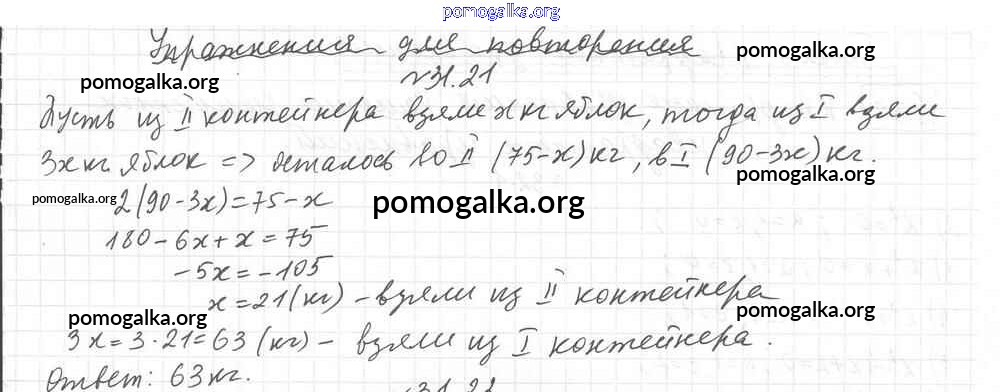 pomogalka.org
Упражнения для повторения
pomogalka.org
№31.21
pomogalka.org
Пусть из II контейнера взяли x кг яблок, тогда из I взяли
3x кг яблок => осталось во II (75-x) кг, в I (90-3x) кг.
pomogalka.org
pomogalka.org
2(90-3x)=75-x
pomogalka.org
180-6x+x=75
-5x=-105
x=21(кг) - взяли из II контейнера
pomogalka.org
pomogalka.org
3x=3·21=63 (кг) - взяли из I контейнера.
Ответ: 63 кг.
31.22